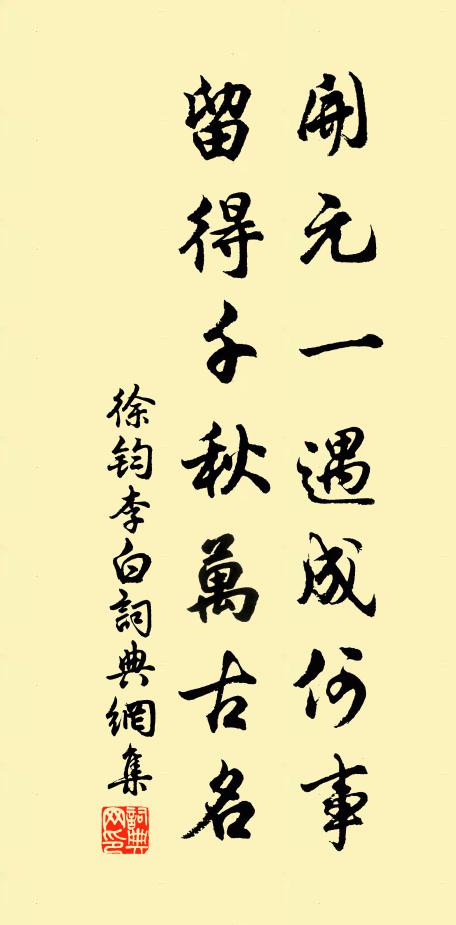 開元一遇成何事
留得千秋萬古名
徐鈞李白詞典網集
詞典网印